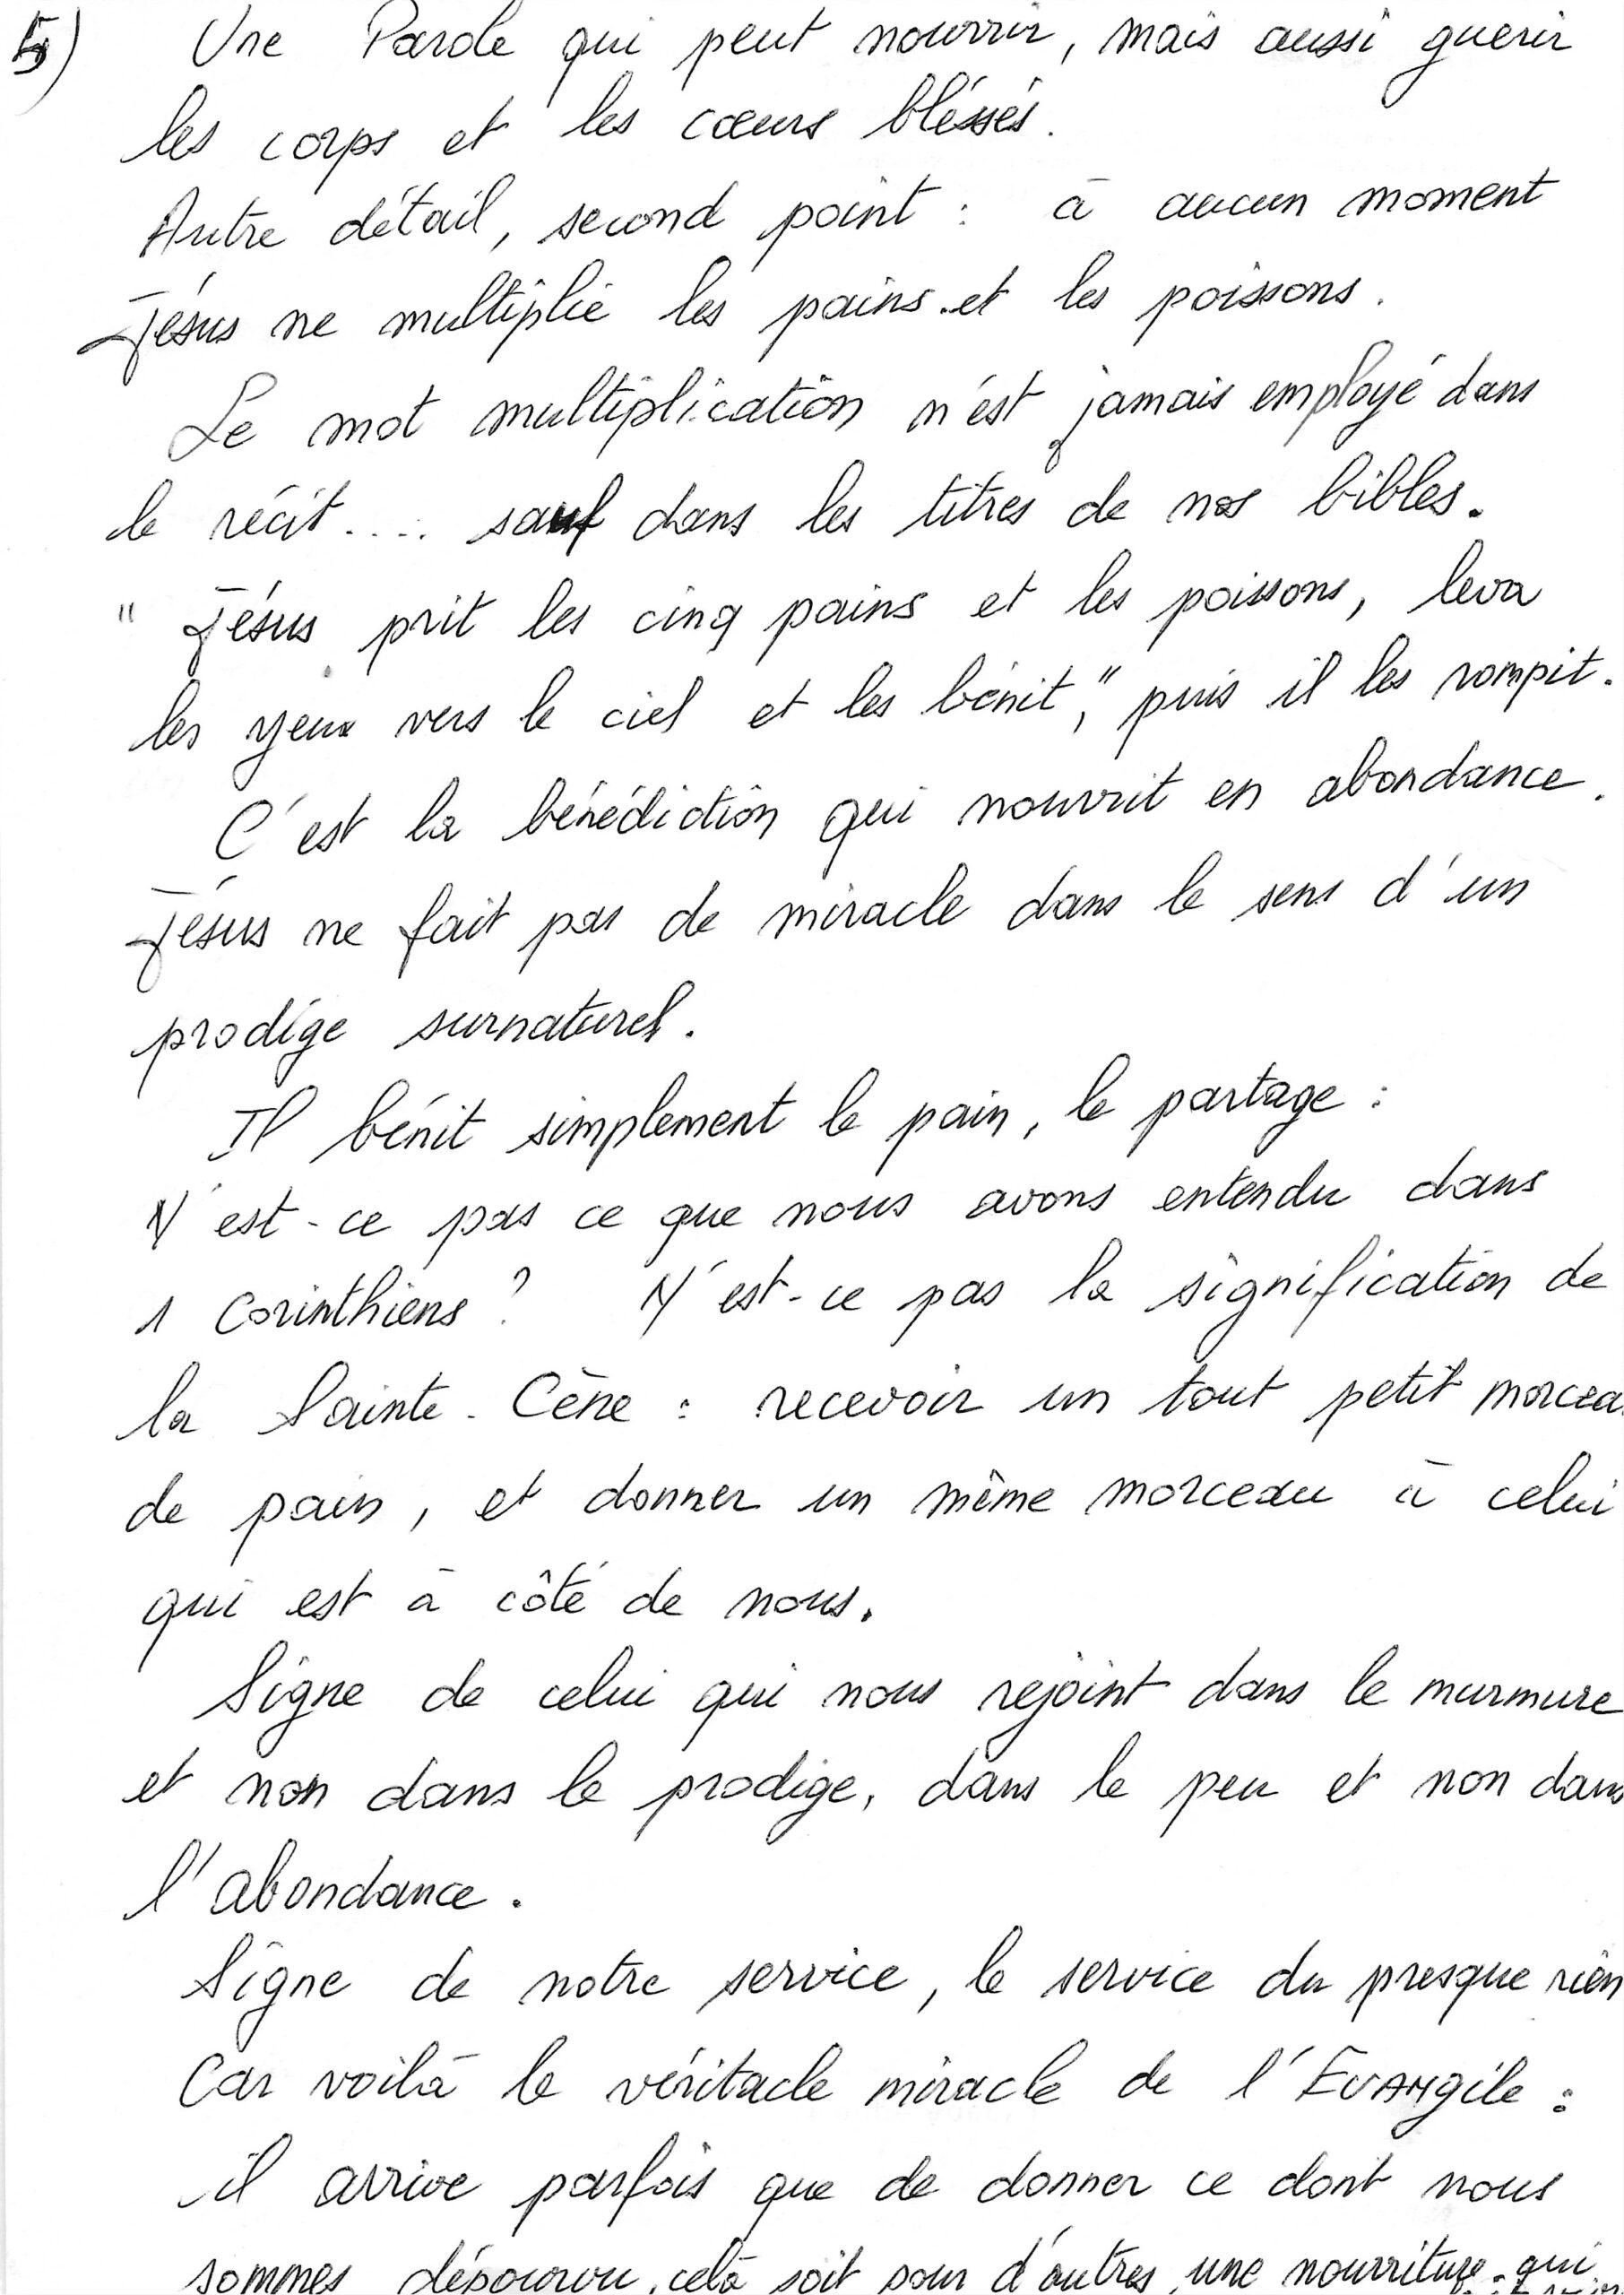 5) Une Parole qui peut nourrir, mais aussi guerir
les corps et les cœurs bléssés.
Autre détail, second point : à aucun moment
Jésus ne multiplie les pains et les poissons.
Le mot multiplication n'est jamais employé dans
le récit .... sauf dans les titres de nos bibles.
" Jésus prit les cinq pains et les poissons, leva
les yeux vers le ciel et les bénit," puis il les rompit.
C'est la bénédiction qui nourrit en abondance.
Jésus ne fait pas de miracle dans le sens d'un
prodige surnaturel.
Il bénit simplement le pain, le partage :
N'est-ce pas ce que nous avons entendu dans
1 Corinthiens ? N'est-ce pas la signification de
la Sainte-Cène : recevoir un tout petit morcea
de pain, et donner un même morceau à celui
qui est à côté de nous.
Signe de celui qui nous rejoint dans le murmure
et non dans le prodige, dans le peu et non dans
l'abondance.
Signe de notre service, le service du presque rien
Car voilà le véritacle miracle de l'EVANgile :
il arrive parfois que de donner ce dont nous
sommes dépourvu, celà soit pour d'autres une nourriture qui